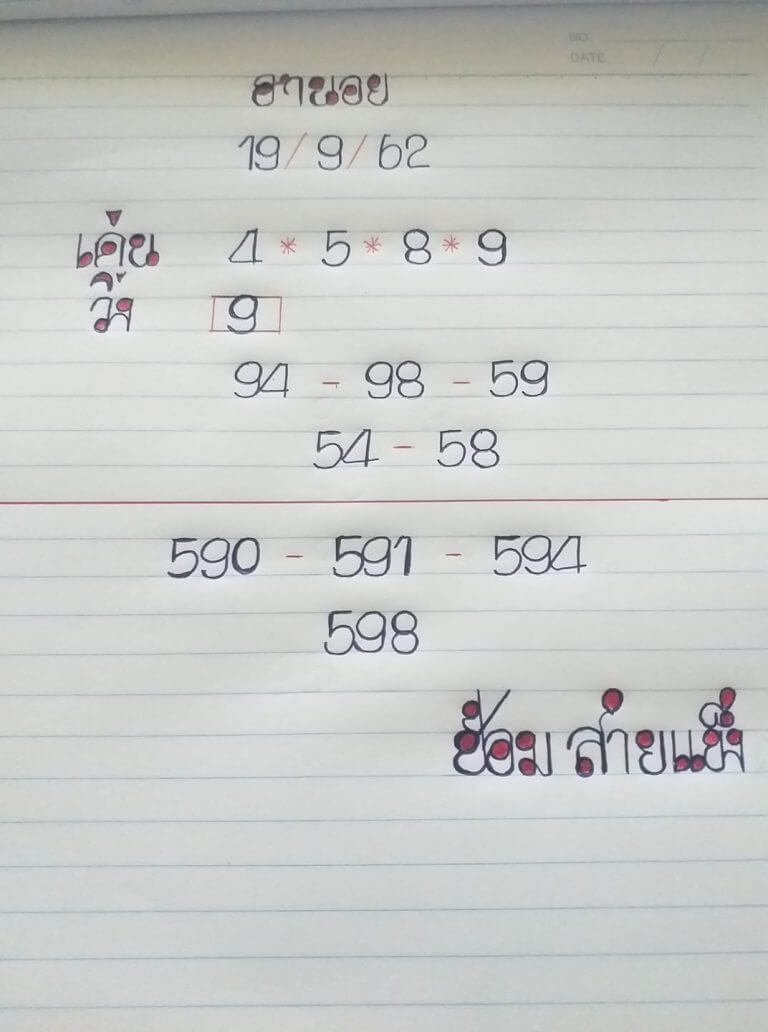 NO.
DATE / /
ฮานอย
19/9/62
เด่น 4 * 5 * 8 * 9
วิ่ง 9
94 - 98 - 59
54 - 58
590 - 591 - 594
598